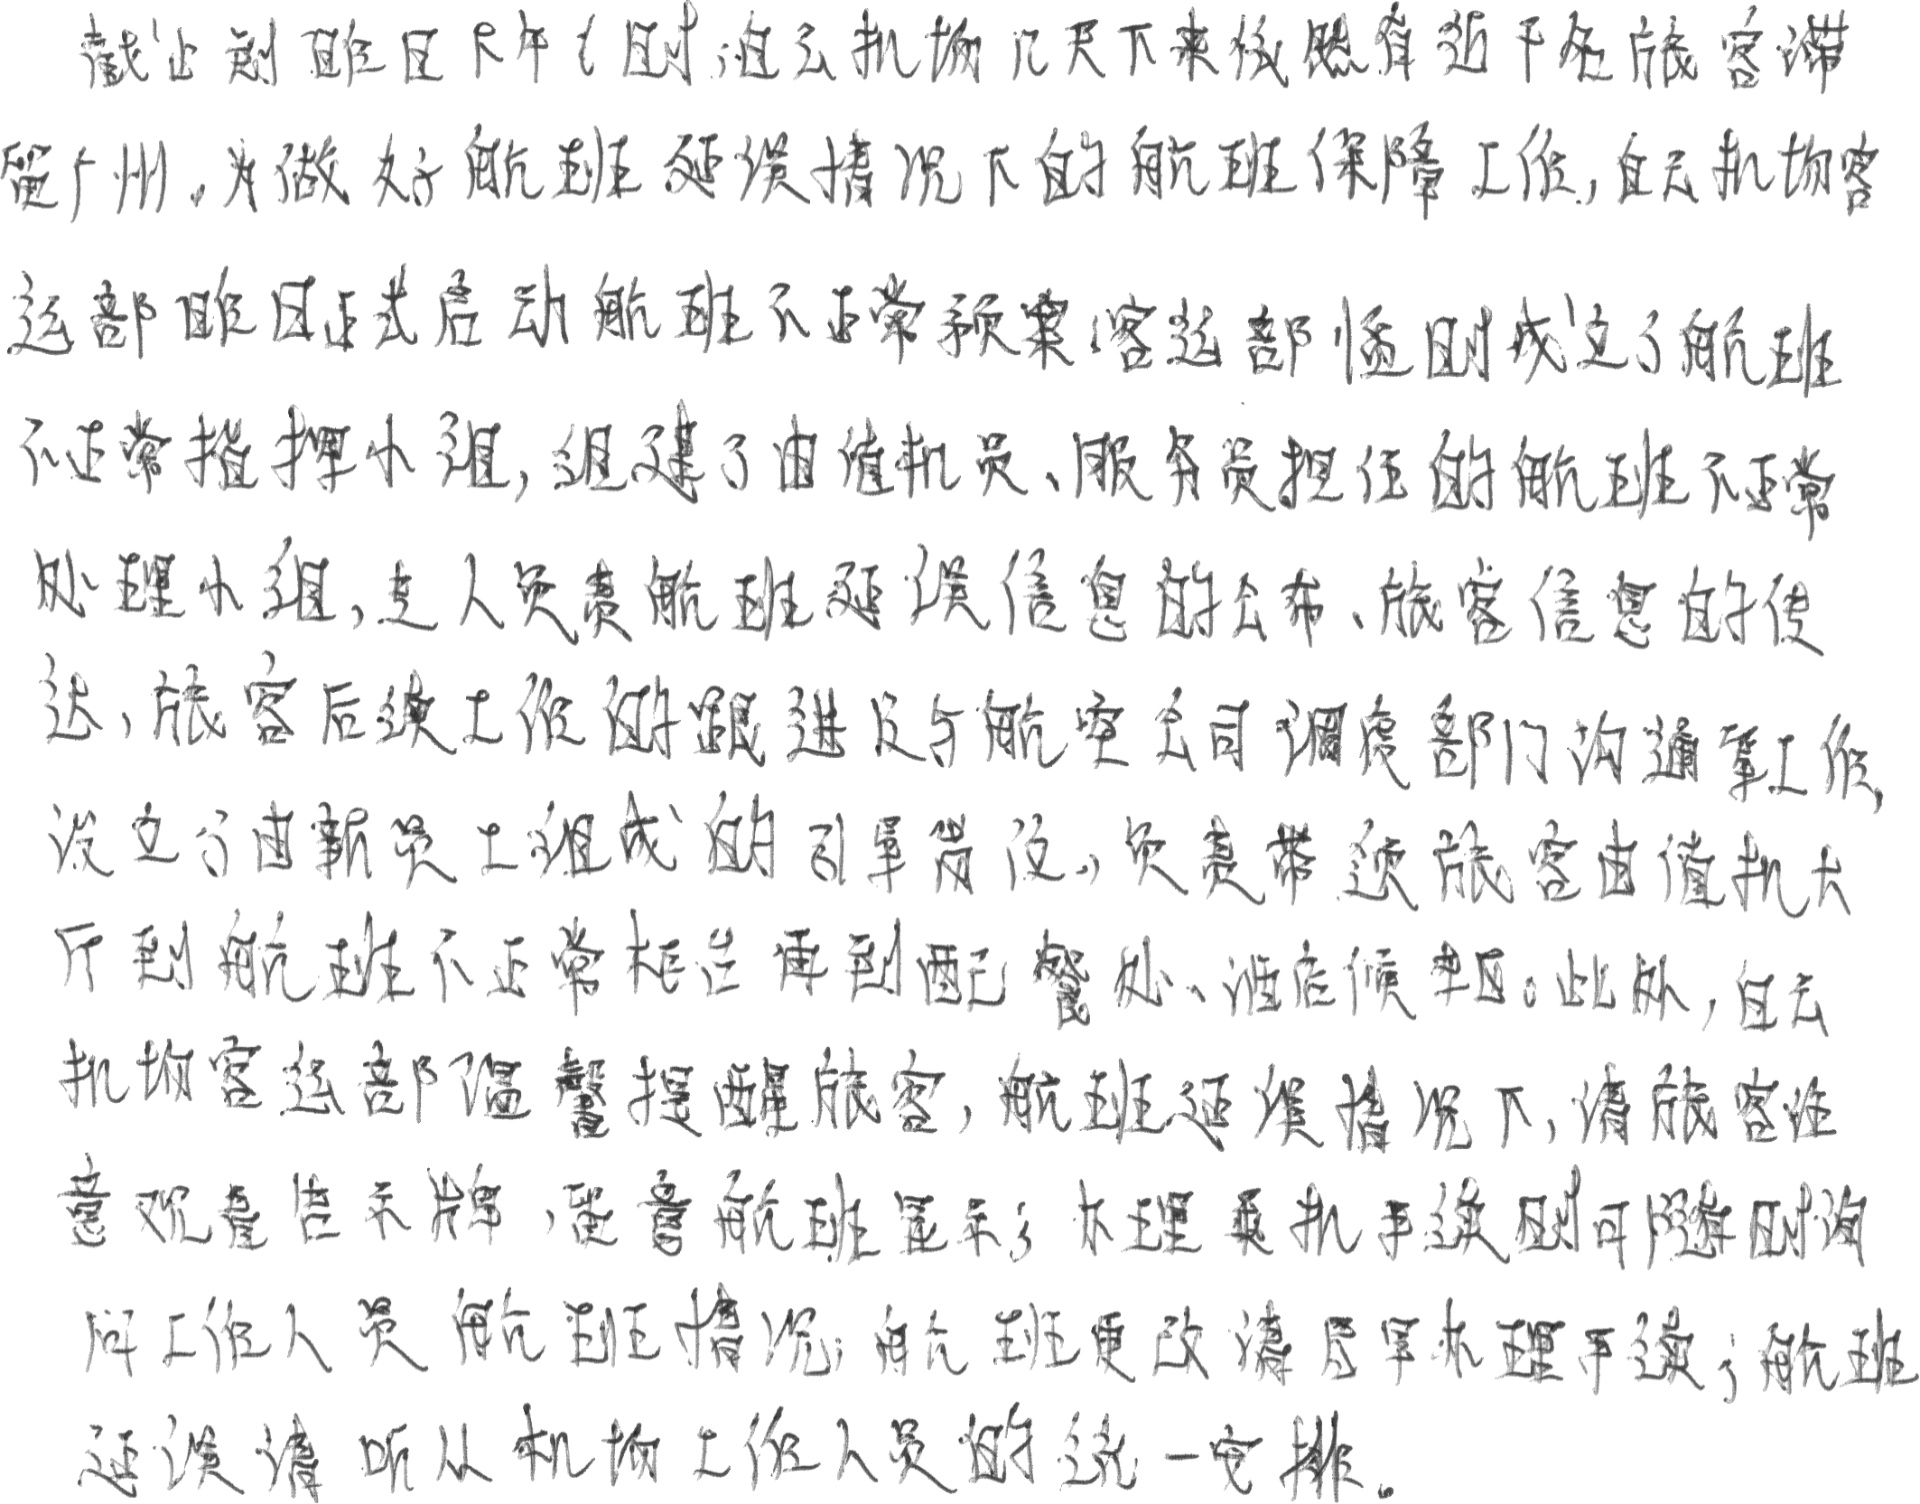 截止到昨日下午6时,白云机场几天下来依然有近千名旅客滞
留广州。为做好航班延误情况下的航班保障工作,白云机场客
运部昨日正式启动航班不正常预案,客运部随时成立了航班
不正常指挥小组,组建了由值机员、服务员担任的航班不正常
处理小组,专人负责航班延误信息的公布、旅客信息的传
达,旅客后续工作的跟进及与航空公司调度部门沟通等工作,
设立了由新员工组成的引导岗位,负责带领旅客由值机大
厅到航班不正常柜台再到配餐处、酒店候车区。此外,白云
机场客运部温馨提醒旅客,航班延误情况下,请旅客注
意观看告示牌,留意航班显示;办理乘机手续时可随时询
问工作人员航班情况;航班更改请尽早办理手续;航班
延误请听从机场工作人员的统一安排。